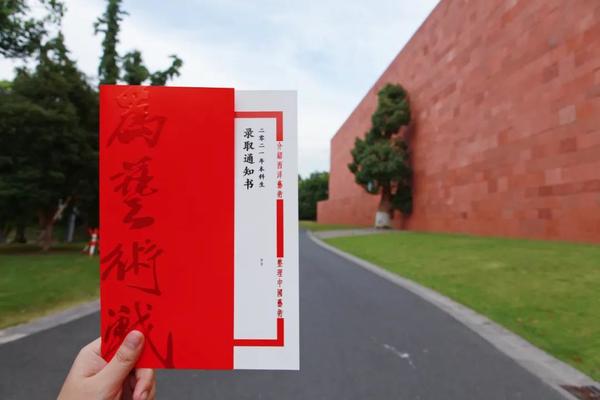 為藝術战
二零二一年本科生
录取通知书
介紹西洋藝術
整理中國藝術